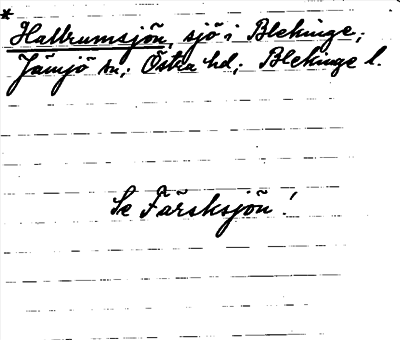 *
Hallrumsjön, sjö i Blekinge;
Jämjö sn; Östra hd; Blekinge l.
Se Färsksjön!